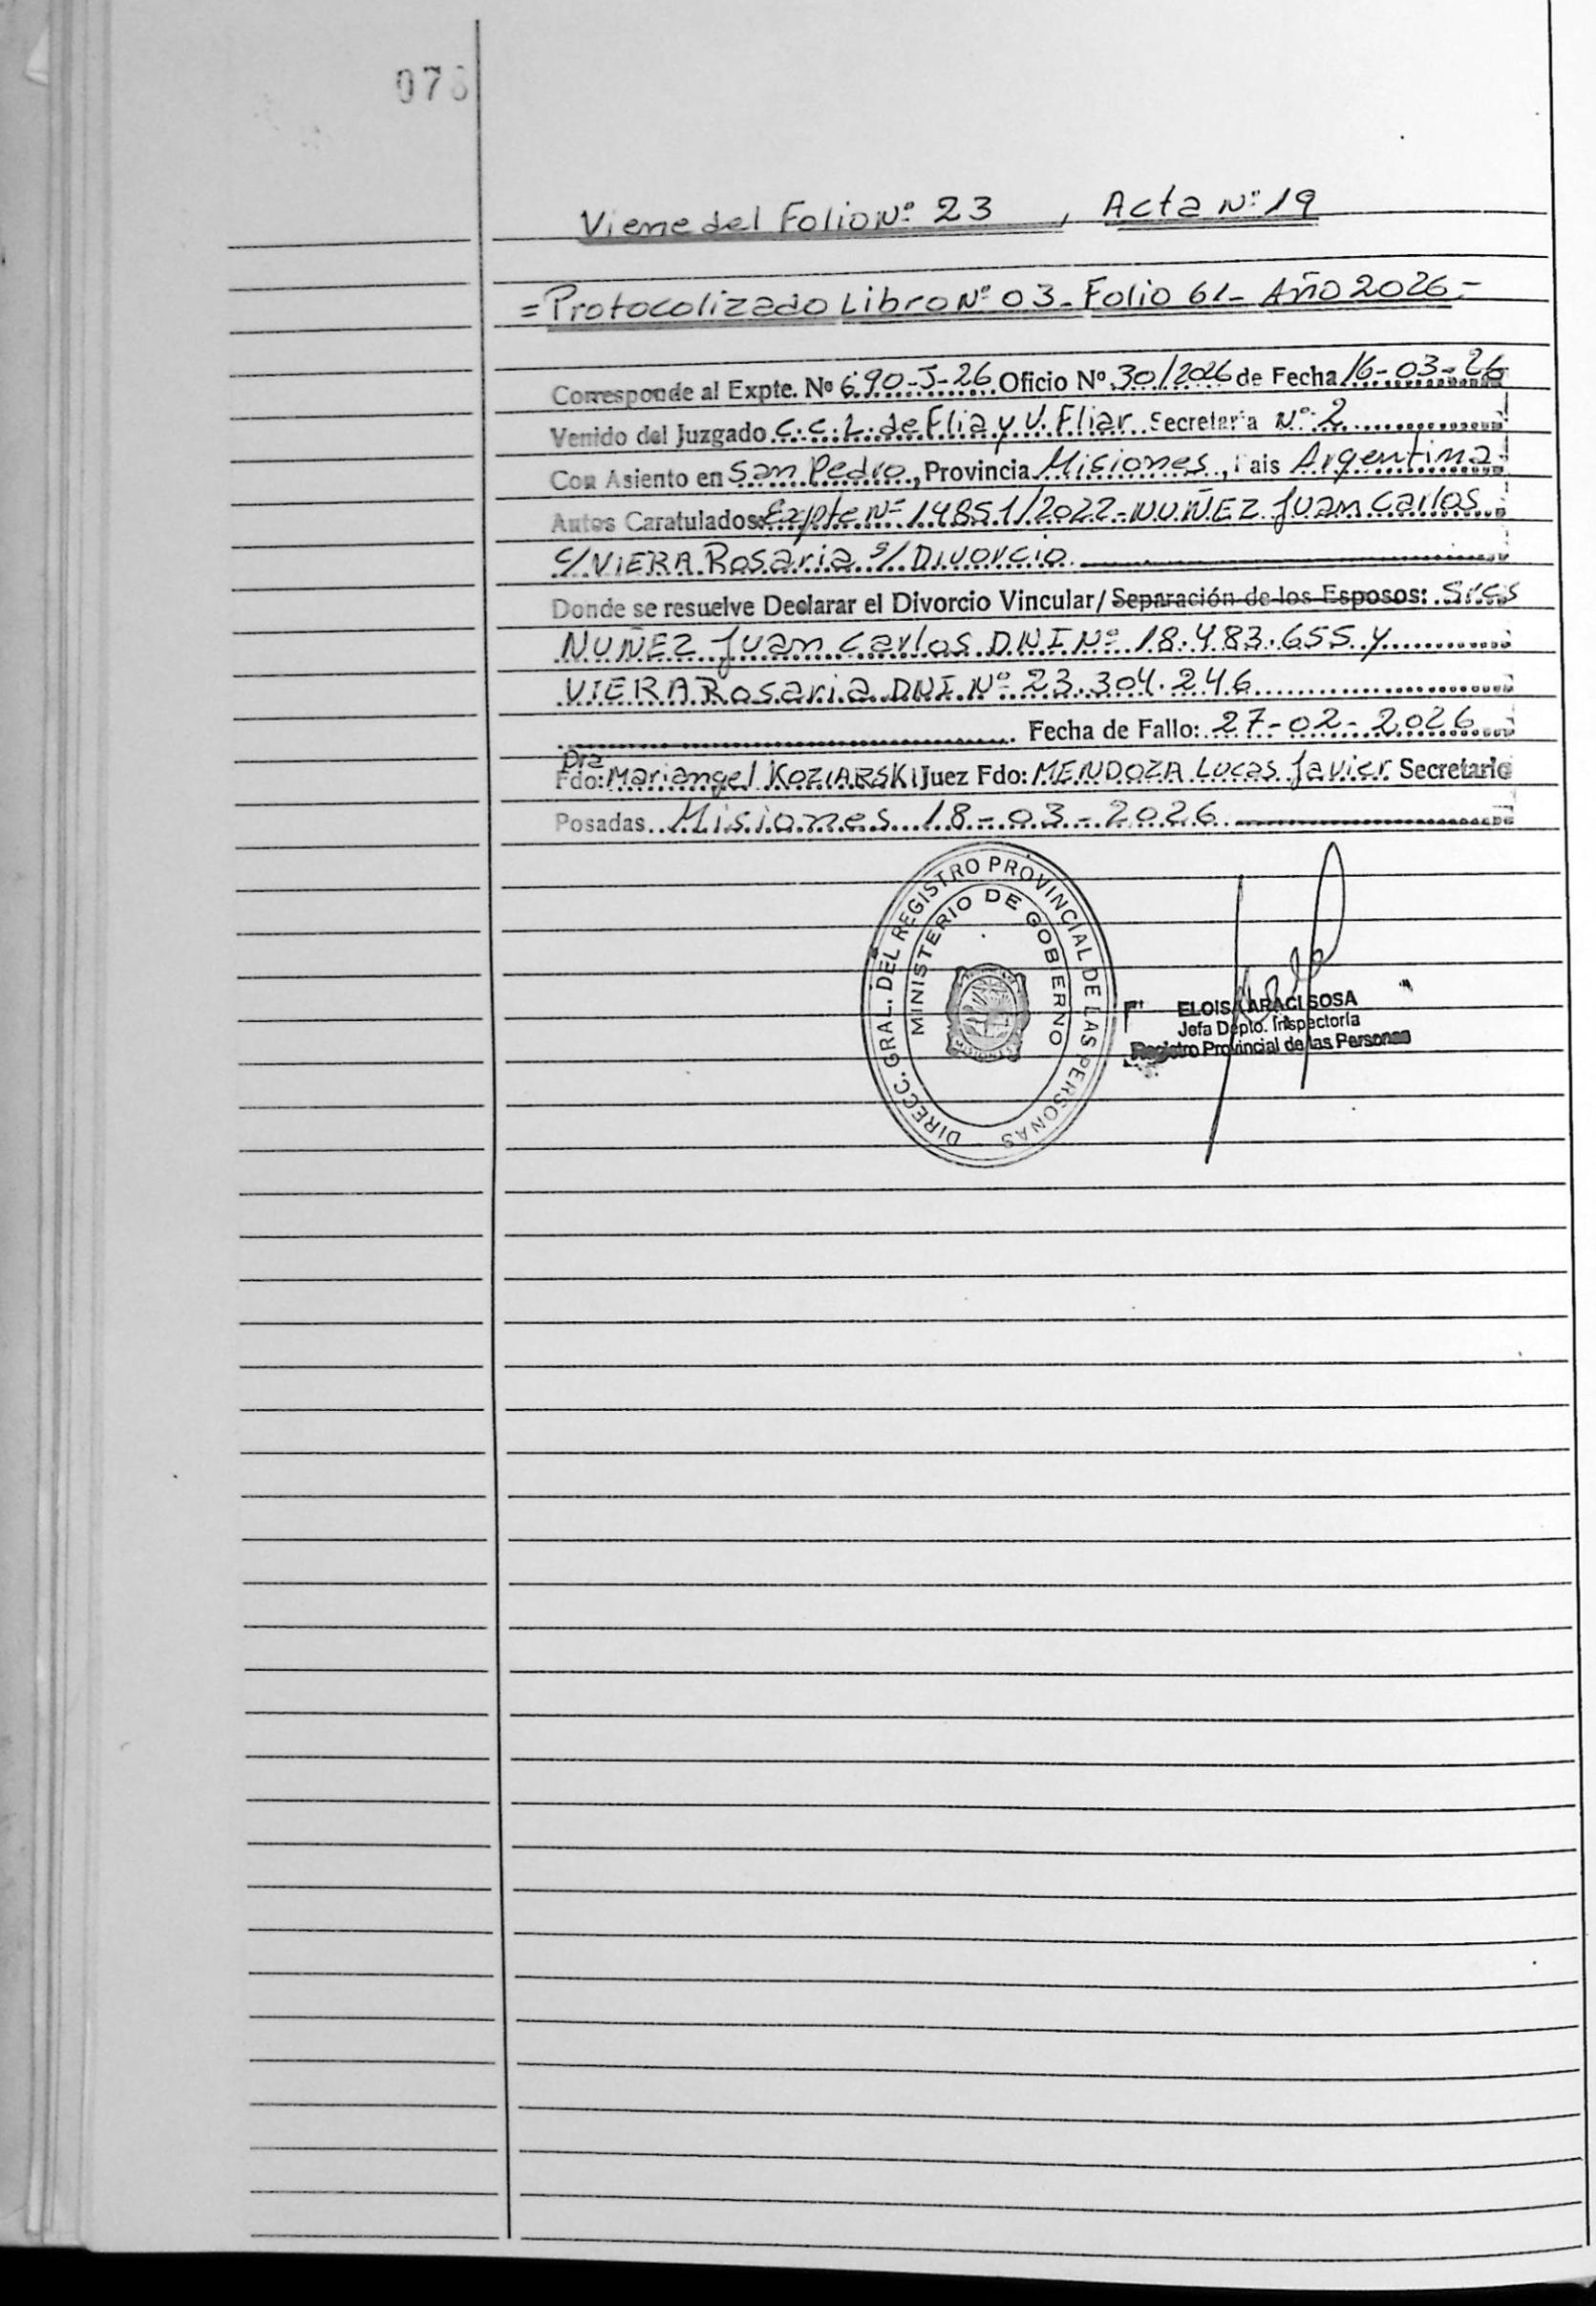 078
Viene del Folio Nº 23, Acta Nº 19
= Protocolizado Libro Nº 03 - Folio 61 - Año 2026 -
Corresponde al Expte. Nº 690-J-26 Oficio Nº 30/2026 de Fecha 16-03-26
Venido del Juzgado C.C.L. de Flia y V. Fliar. Secretaria Nº 2
Con Asiento en San Pedro, Provincia Misiones, Pais Argentina
Autos Caratulados: Expte Nº 14851/2022 - NUÑEZ Juan Carlos
c/ VIERA Rosaria s/ Divorcio
Donde se resuelve Declarar el Divorcio Vincular/ Separación de los Esposos: Sres
NUÑEZ Juan Carlos DNI Nº 18.483.655 y
VIERA Rosaria DNI. Nº 23.304.246
Fecha de Fallo: 27-02-2026
Dra
Fdo: Mariangel KOZIARSKI Juez Fdo: MENDOZA Lucas Javier Secretario
Posadas Misiones 18-03-2026
DIRECC. GRAL. DEL REGISTRO PROVINCIAL DE LAS PERSONAS
MINISTERIO DE GOBIERNO
MISIONES
ELOISA ARACI SOSA
Jefa Dpto. Inspectoría
Registro Provincial de las Personas